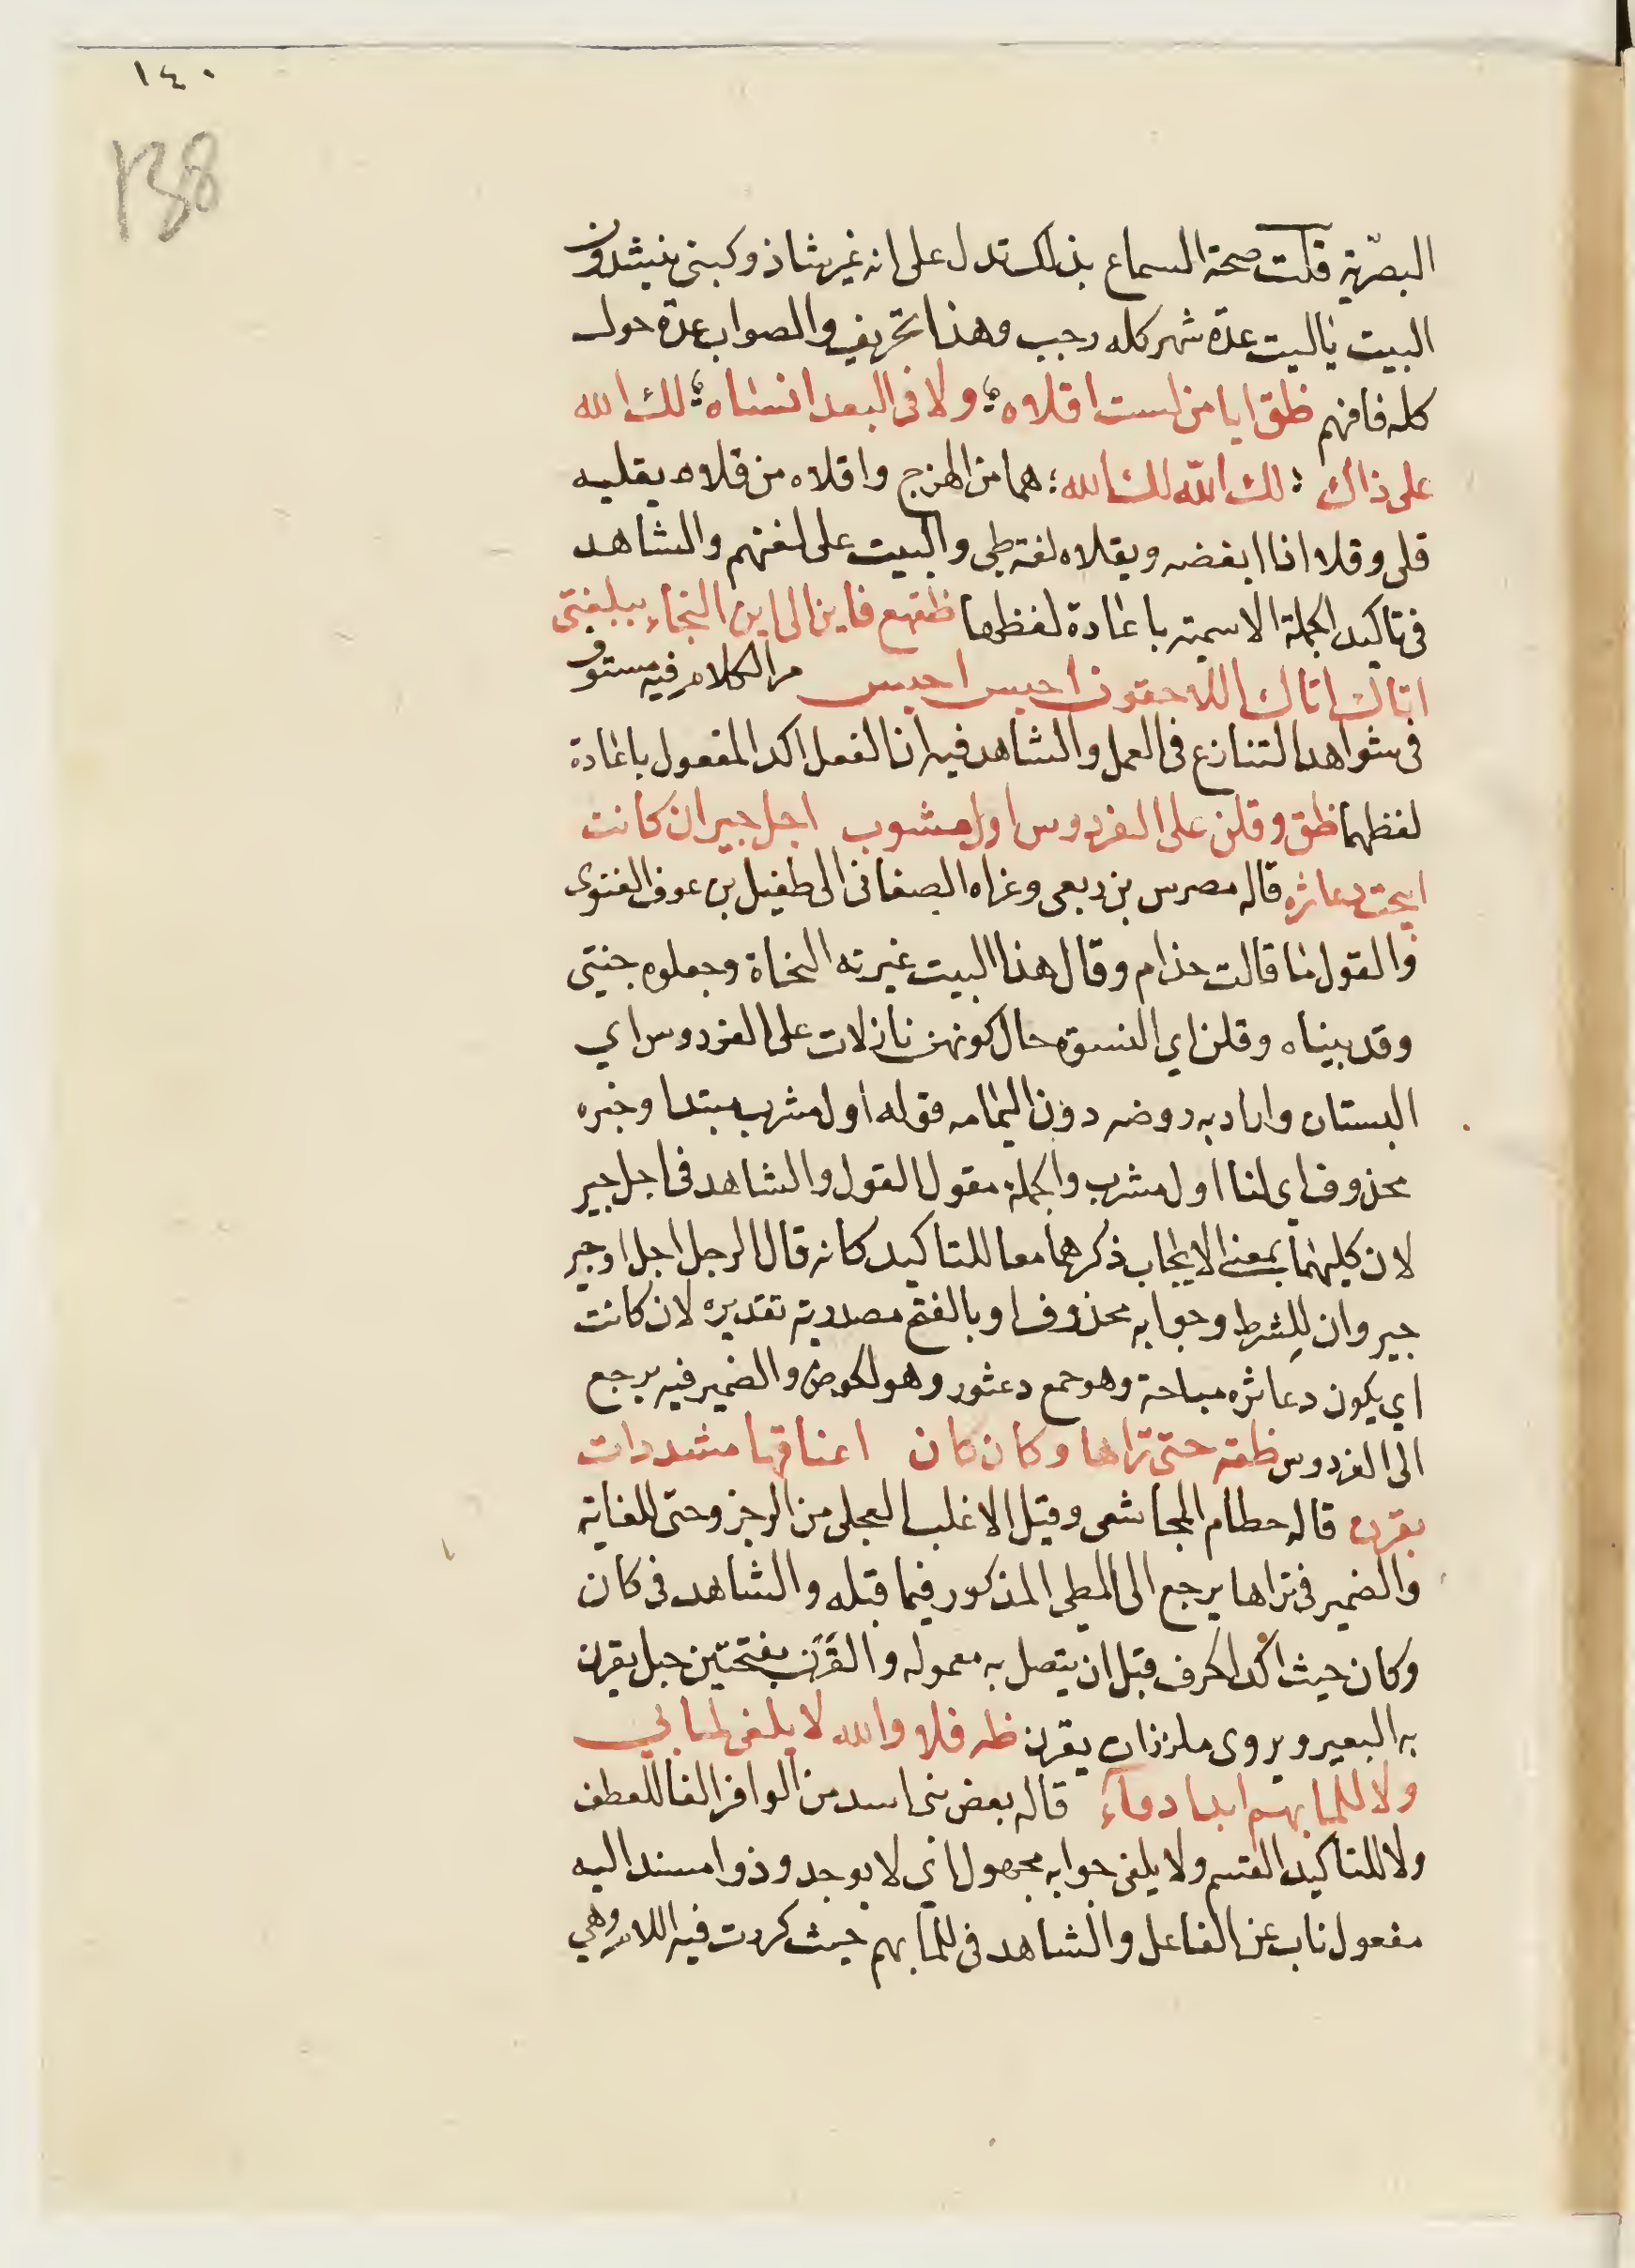 ١٤٠
138
البصرية قلت صحة السماع بذلك تدل على انه غير شاذ وكبنى ينشدون
البيت ياليت عدة شهر كله رجب وهذا تحريف والصواب عدة حول
كله فافهم ظق ايا من لست اقلاه ولا فى البعد انساه لك الله
على ذاك لك الله لك الله هما من الهزج واقلاه من قلاه يقليه
قلى وقلا اذا ابغضه ويقلاه لغة طى والبيت على لغتهم والشاهد
فى تاكيد الجملة الاسمية باعادة لفظها ظقهع فاين الى اين النجاء ببلغتى
اتاك اتاك اللاحقون احبس احبس مر الكلام فيه مستوفى
فى شواهد التنازع فى العمل والشاهد فيه ان الفعل اكد المفعول باعادة
لفظهما ظق وقلن على الفردوس اول مشوب اجل جير ان كانت
ابيحت دعاثره قاله مصرس بن ربعى وعزاه الصغانى الى طفيل بن عوف الغنوى
والقول ما قالت حذام وقال هذا البيت غيرته النحاة وجعلوه جنتى
وقد بيناه وقلن اي النسوة حال كونهن نازلات على الفردوس اي
البستان واراد به روضه دون اليمامه فقوله اول مشرب مبتدا وخبره
محذوف اى لنا اول مشرب والجملة مقول القول والشاهد فى اجل جير
لان كليهما بمعنى الايجاب ذكرهما معا للتاكيد كانه قال الرجل اجل او جير
جير وان للشرط وجوابه محذوف او بالفتح مصدرية تقديره لان كانت
اي يكون دعاثره مباحة وهو جمع دعثور وهو الحوض والضمير فيه يرجع
الى الفردوس ظقه حتى تراها وكان كان اعناقها مشددات
بقرن قاله حطام المجاشعى وقيل الاغلب العجلى من الرجز وحتى للغاية
والضمير فى تراها يرجع الى المطى المذكور فيما قبله والشاهد فى كان
وكان حيث اكد الحرف قبل ان يتصل به معموله والقَرَن بفتحتين حبل يقرن
به البعير ويروى ملززات بقرن ظه فلا والله لا يلفى لما بي
ولا للما بهم ابدا دوآء قاله بعض بنى اسد من الوافر الفا للعطف
ولا للتاكيد القسم ولا يلفى جوابه مجهول اي لا يوجد وذوا مسند اليه
مفعول ناب عن الفاعل والشاهد فى للما بهم حيث كررت فيه اللام وهي